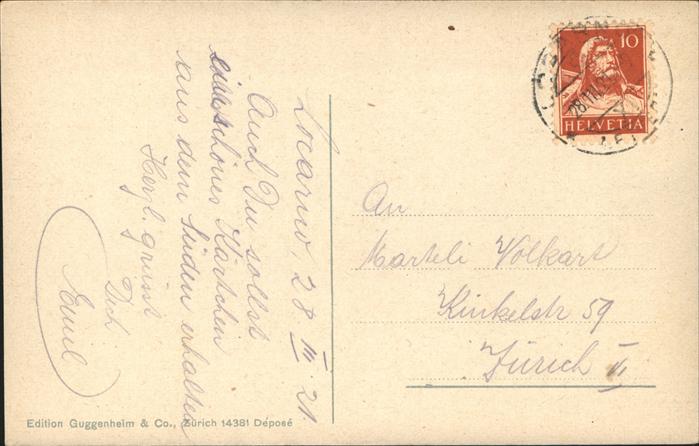 Locarno, 28. III. 21.
Auch Du sollst
ein schönes Kärtchen
aus dem Süden erhalten
Herzl. grüsst
Dich
Emil
An
Marteli Volkart
Kinkelstr 59
Zürich 6
10
HELVETIA
Edition Guggenheim & Co., Zürich 14381 Déposé